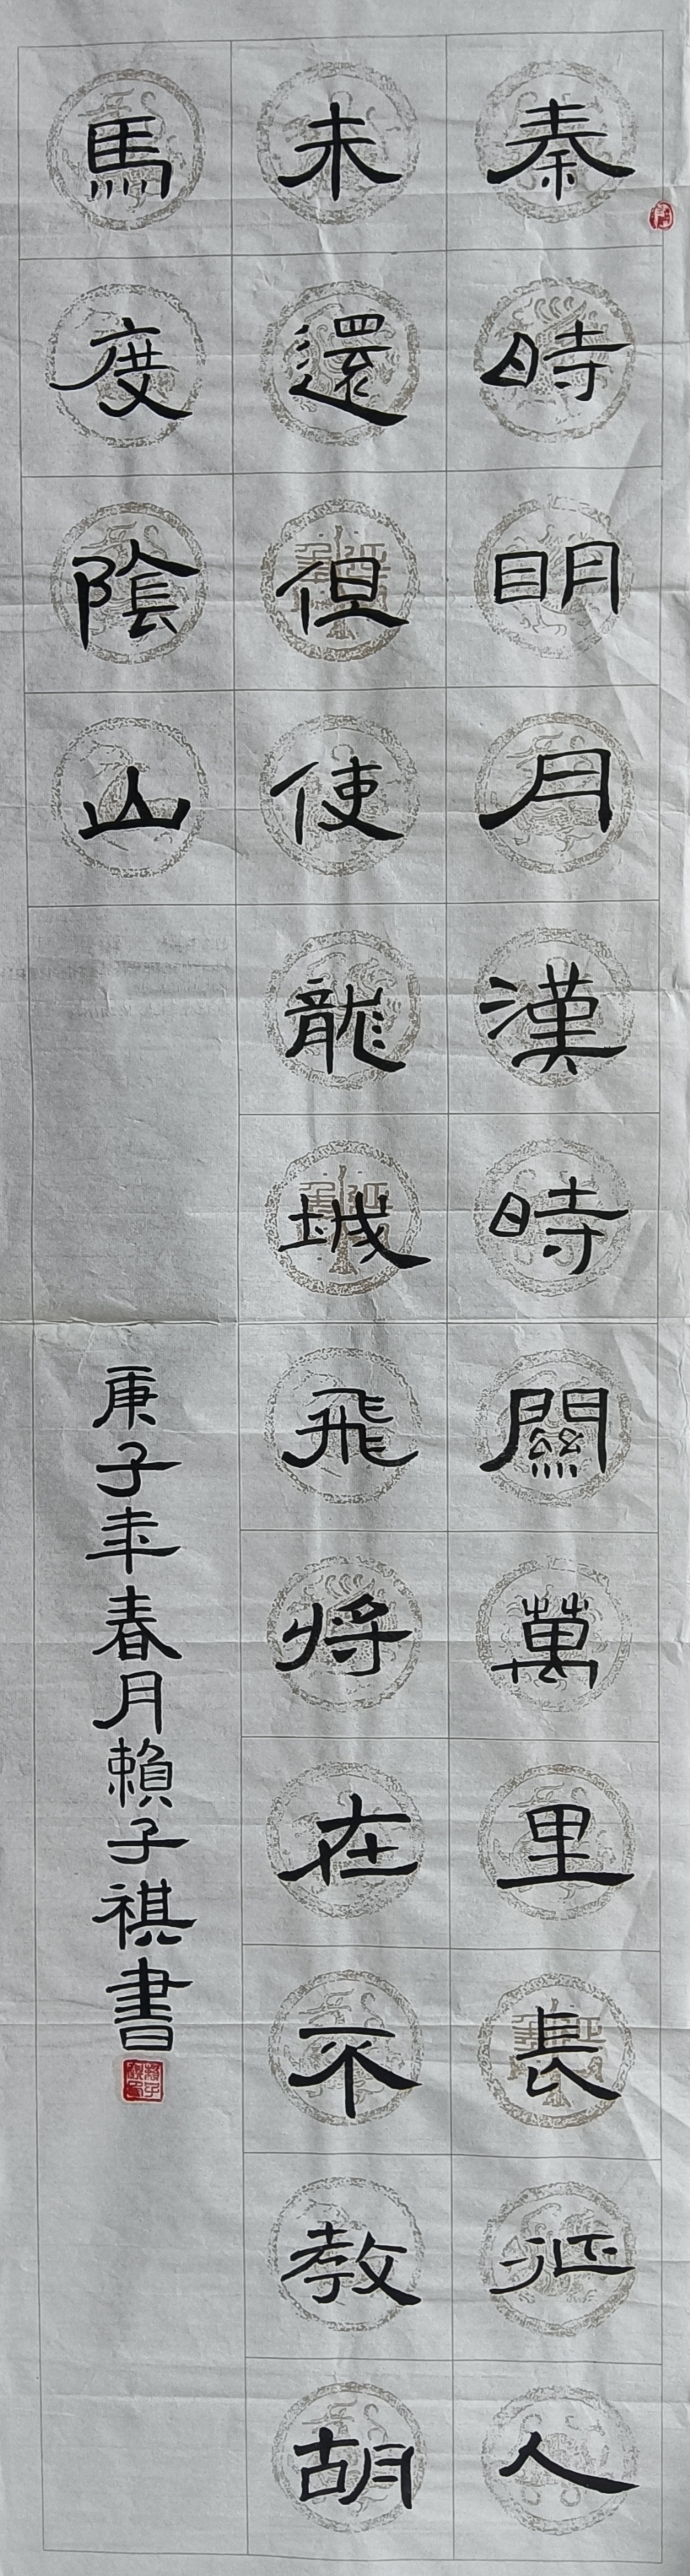 秦時明月漢時關萬里長征人
未還但使龍城飛将在不教胡
馬度陰山
庚子年春月賴子祺書